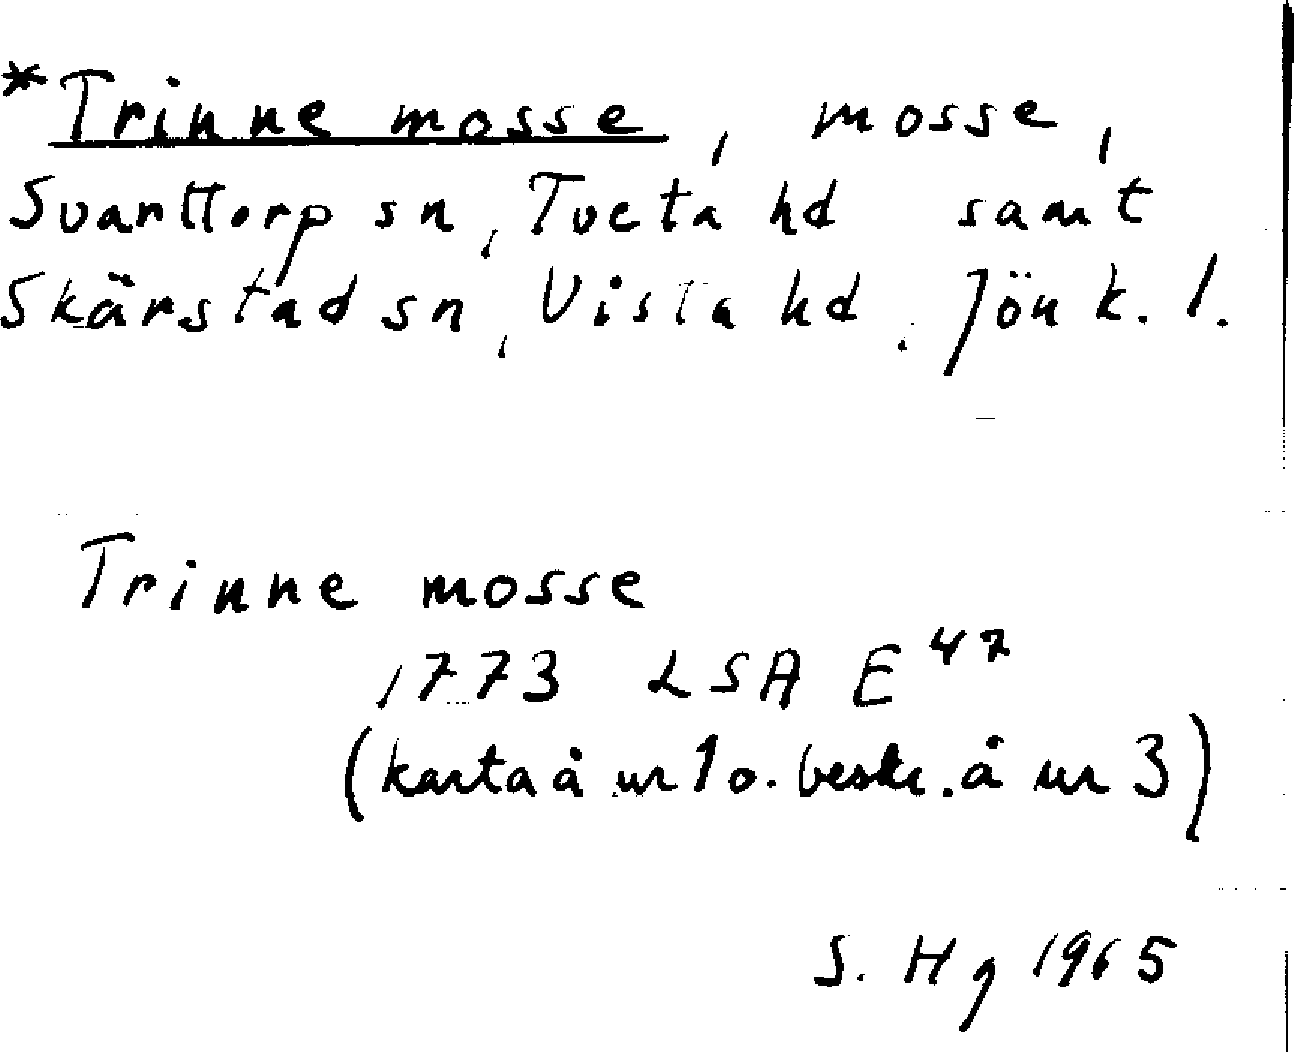 *Trinne mosse, mosse,
Svarttorp sn, Tveta hd samt
Skärstad sn, Vista hd. Jönk. l.
Trinne mosse
1773 LSA E 47
(karta å nr 1 o. beskr. å nr 3)
S. Hg 1965